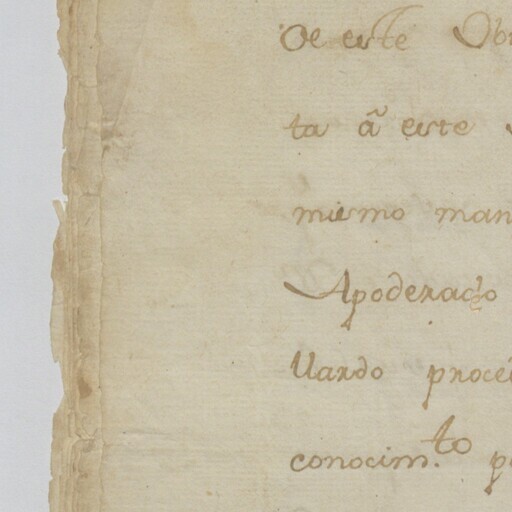 De este Ob
ta â este
mismo man
Apoderado
Uando proce
conocim.to p